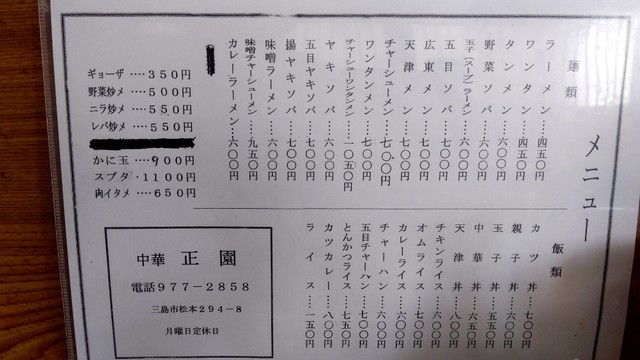 メニュー
麺類
ラーメン‥‥四五〇円
ワンタン‥‥四五〇円
タンメン‥‥六〇〇円
野菜ソバ‥‥六〇〇円
玉子(スープ)ラーメン‥‥六〇〇円
五目ソバ‥‥七〇〇円
広東メン‥‥七〇〇円
天津メン‥‥七〇〇円
チャーシューメン‥‥七〇〇円
ワンタンメン‥‥七〇〇円
チャーシューワンタンメン‥‥一〇五〇円
ヤキソバ‥‥六〇〇円
五目ヤキソバ‥‥七〇〇円
揚ヤキソバ‥‥七〇〇円
味噌ラーメン‥‥六〇〇円
味噌チャーシューメン‥‥九五〇円
カレーラーメン‥‥六〇〇円
ギョーザ ‥‥350円
野菜炒メ ‥‥500円
ニラ炒メ ‥‥550円
レバ炒メ ‥‥550円
かに玉 ‥‥900円
スブタ ‥1100円
肉イタメ ‥‥650円
飯類
カツ丼‥‥七〇〇円
親子丼‥‥六〇〇円
玉子丼‥‥五五〇円
中華丼‥‥六五〇円
天津丼‥‥六〇〇円
チキンライス‥‥六〇〇円
オムライス‥‥七〇〇円
カレーライス‥‥六〇〇円
チャーハン‥‥六〇〇円
五目チャーハン‥‥七〇〇円
とんかつライス‥‥七五〇円
カツカレー‥‥八〇〇円
ライス‥‥一五〇円
中華 正園
電話977-2858
三島市松本294-8
月曜日定休日